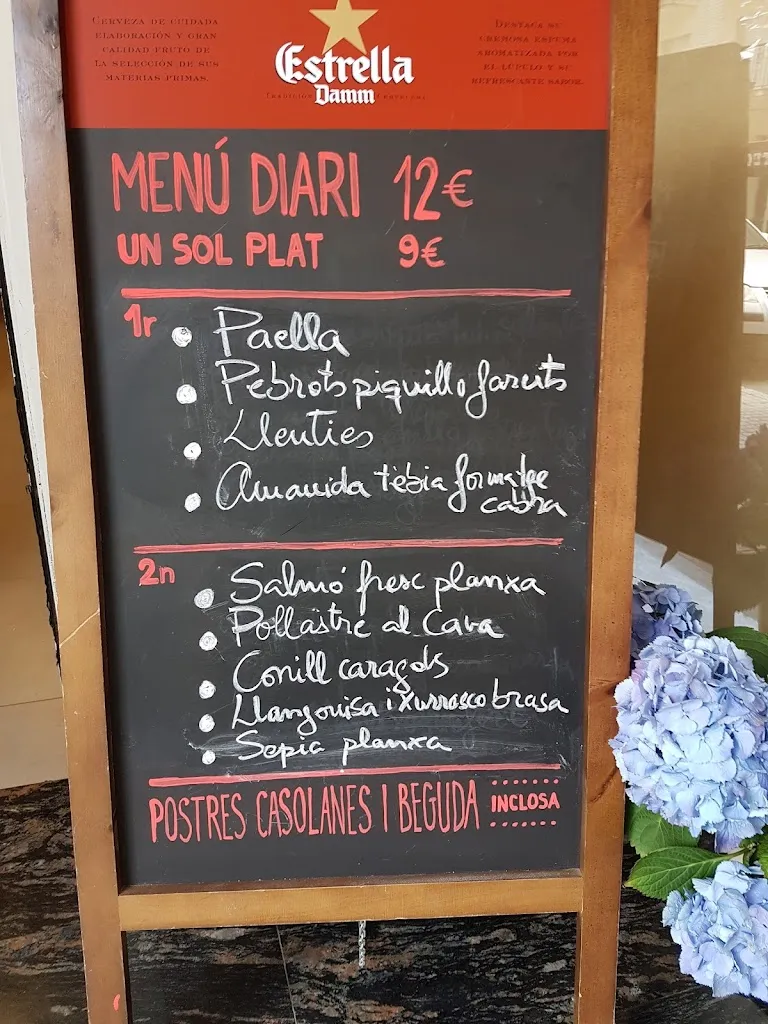 CERVEZA DE CUIDADA
ELABORACIÓN Y GRAN
CALIDAD FRUTO DE
LA SELECCIÓN DE SUS
MATERIAS PRIMAS.
Estrella
Damm
DESTACA SU
CREMOSA ESPUMA
AROMATIZADA POR
EL LÚPULO Y SU
REFRESCANTE SABOR.
MENÚ DIARI 12€
UN SOL PLAT 9€
1r
Paella
Pebrots piquillo farcits
Llenties
Amanida tèbia formatge
cabra
2n
Salmó fresc planxa
Pollastre al Cava
Conill caragols
Llangonisa i xurrasco brasa
Sepia planxa
POSTRES CASOLANES I BEGUDA INCLOSA